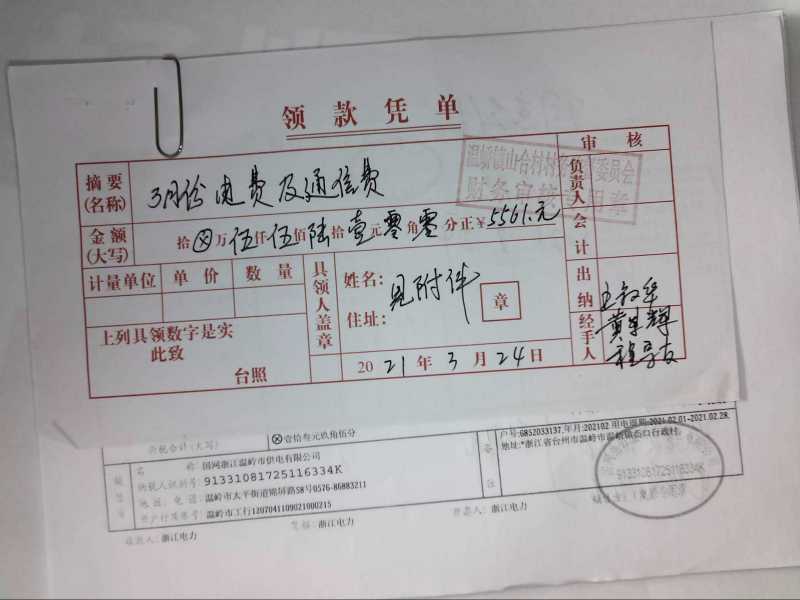 领款凭单
审核
摘要
(名称)
3月份电费及通信费
温峤镇山合村村务监督委员会
财务审核专用章
负责人
金额
(大写)
拾⊗万伍仟伍佰陆拾壹元零角零分正¥5561.元
会计
计量单位 单价 数量
具领人盖章
姓名:
住址:
见附件
章
出纳
上列具领数字是实
此致
台照
经手人
2021年3月24日
价税合计(大写)
⊗壹拾叁元玖角伍分
名称:国网浙江温岭市供电有限公司
纳税人识别号:91331081725116334K
地址、电话:温岭市太平街道锦屏路58号0576-86883211
开户行及账号:温岭市工行1207041109021000215
备注
户号:6852033137,年月:202102 用电周期:2021.02.01-2021.02.28.
地址:*浙江省台州市温岭市温峤镇
91331081725116334K
收款人:浙江电力
复核:浙江电力
开票人:浙江电力